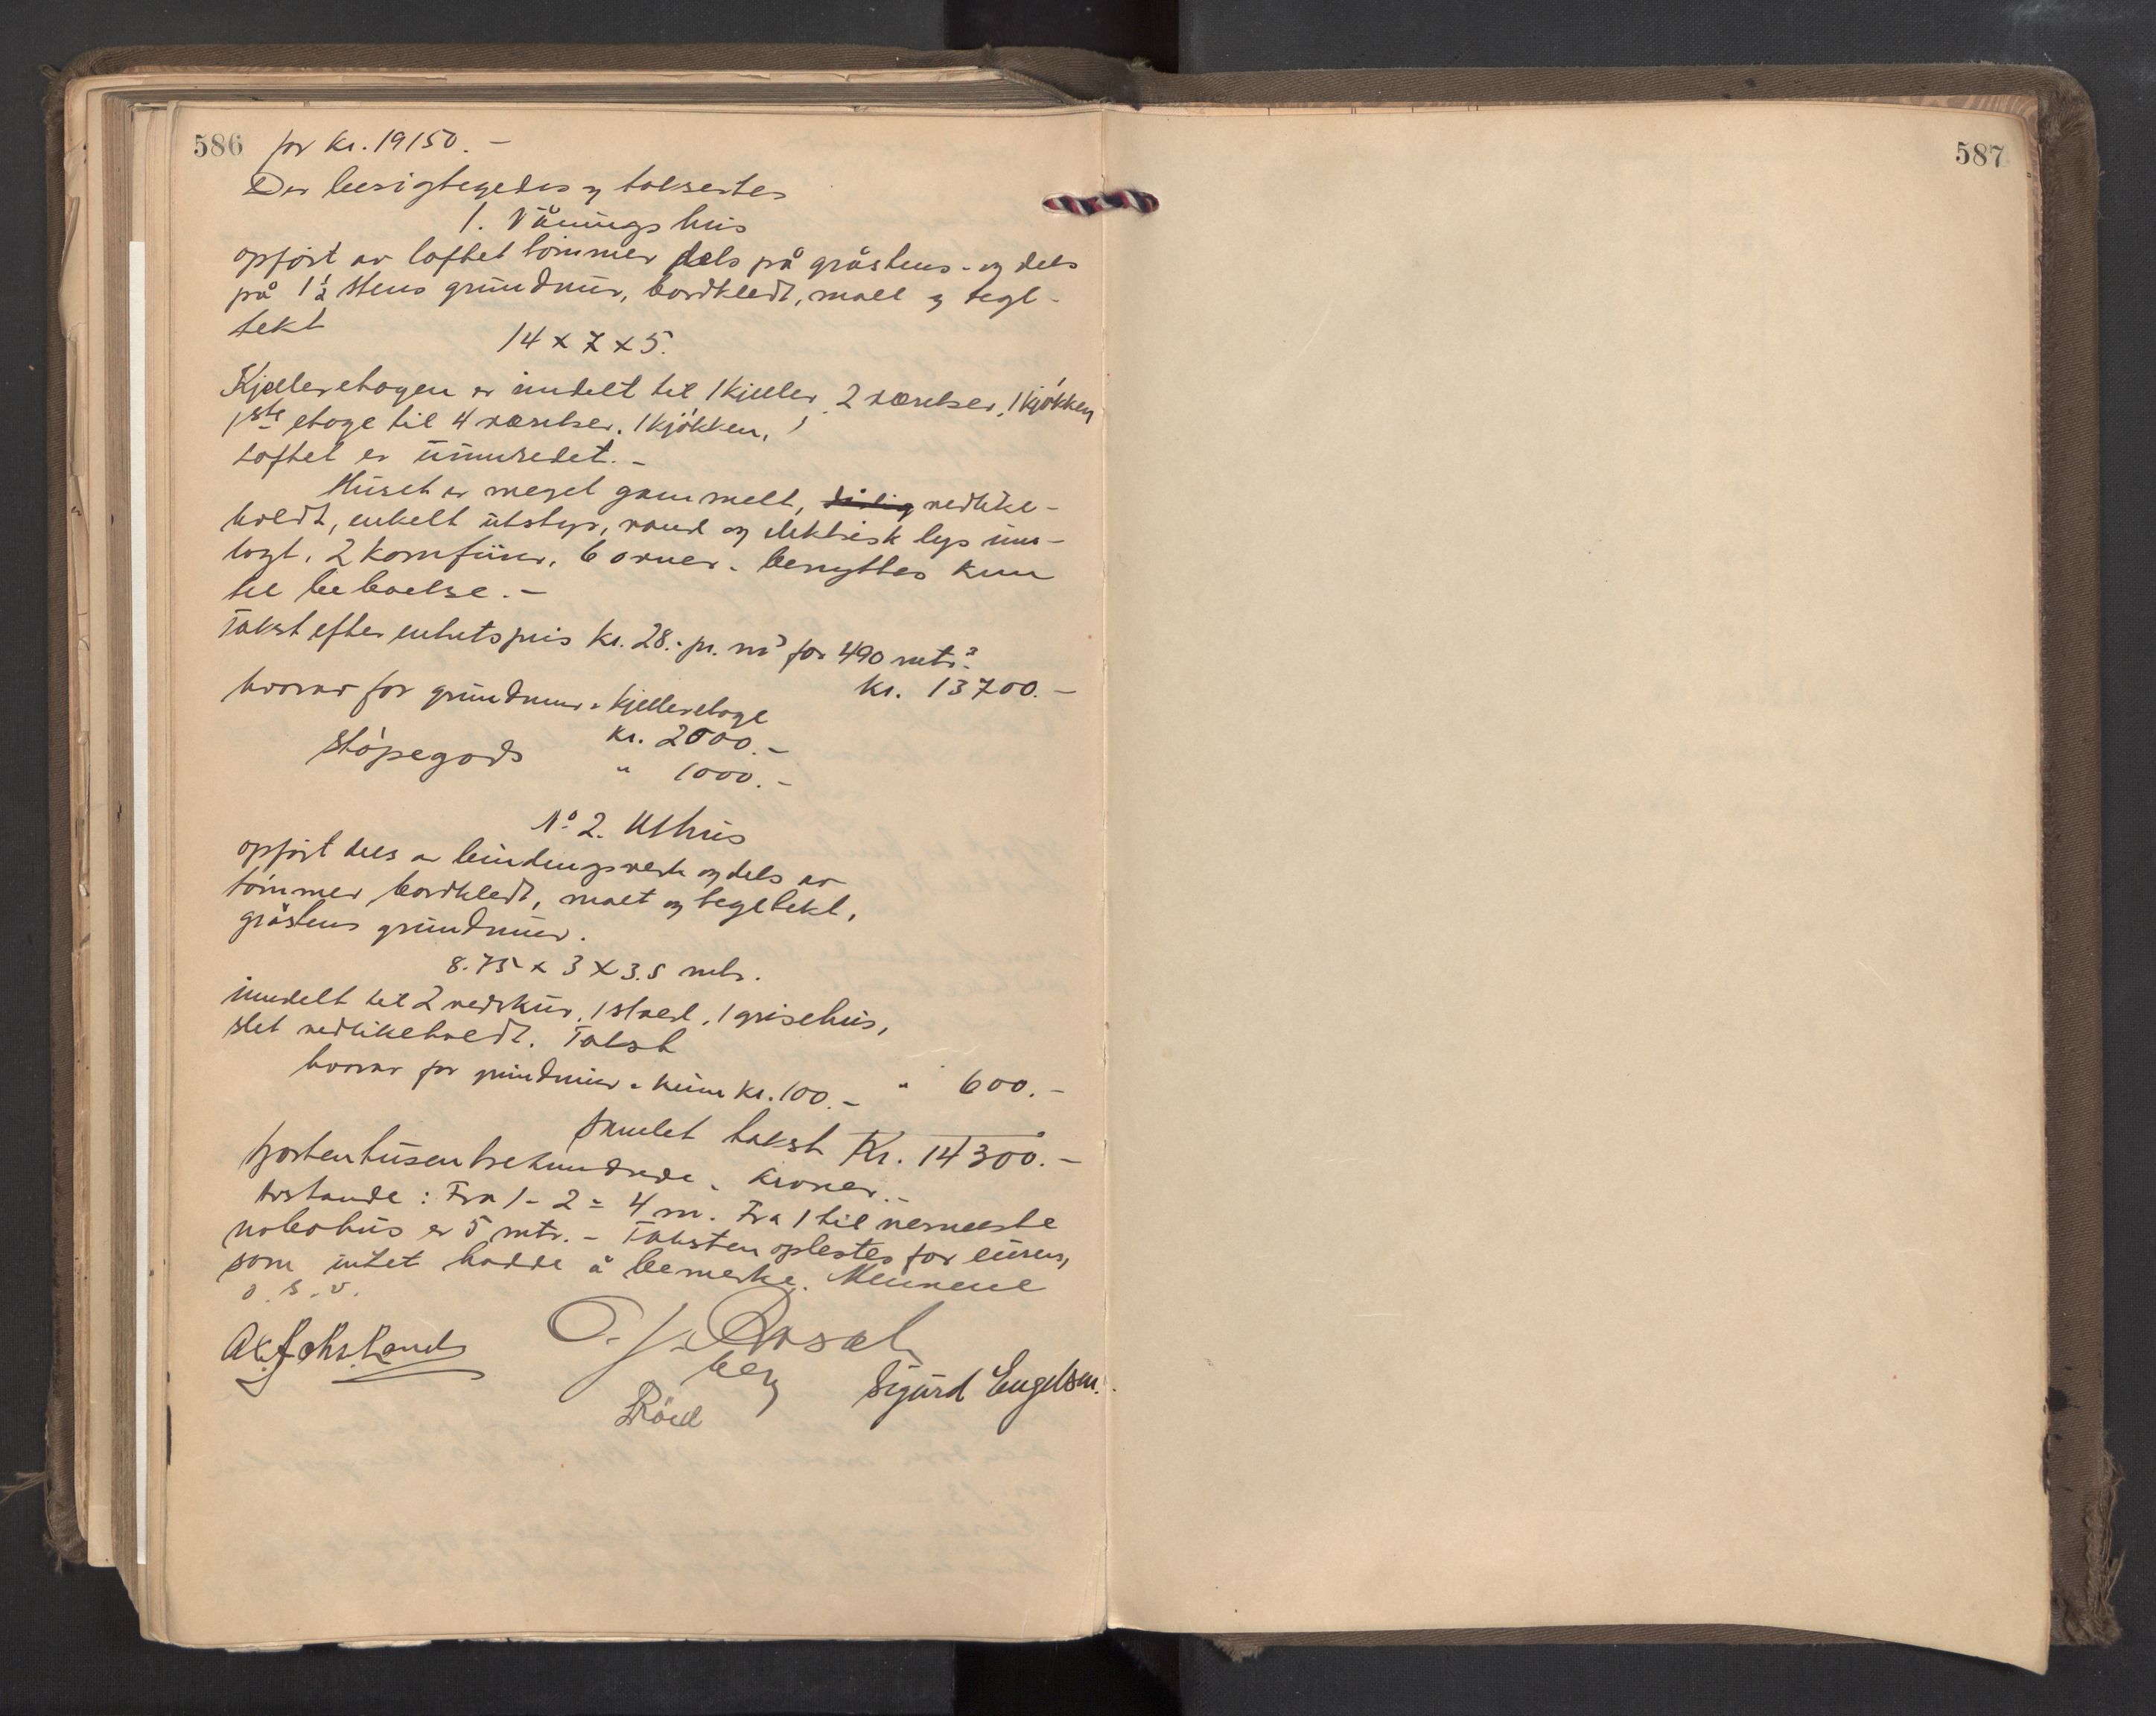 586 for kr. 19150.-
Der besigtigedes og taksertes
1. Våningshus
opført av laftet tømmer dels på gråstens- og dels
på 1½ stens grundmur, bordkledt, malt og tegl-
tekt
14 x 7 x 5.
Kjelleretagen er inndelt til 1 kjeller, 2 værelser, 1 kjøkken,
1ste etage til 4 værelser, 1 kjøkken,
Loftet er uinnredet.-
Huset er meget gammelt, dårlig vedlike-
holdt, enkelt utstyr, vand og elektrisk lys inn-
lagt, 2 komfurer, 6 ovner. benyttes kun
til beboelse.-
Takst efter enhetspris kr. 28.- pr. m³ for 490 mtr³.
kr. 13700.-
hvorav for grundmur & kjelleretage
kr. 2000.-
Støpegods " 1000.-
No 2. Uthus
opført dels av bindingsverk og dels av
tømmer bordkledt, malt og tegltekt,
gråstens grundmur.
8.75 x 3 x 3.5 mtr.
inndelt til 2 vedskur, 1 stald, 1 grisehus,
slet vedlikeholdt. Takst
hvorav for grundmur kr. 100.- " 600.-
Samlet takst Kr. 14300.-
fjortentusentrehundrede kroner.-
Avstande: Fra 1 - 2 = 4 m. Fra 1 til nærmeste
nabohus er 5 mtr. - Taksten oplestes for eieren,
som intet hadde å bemerke. Mennene
o. s. v.
Sigurd Engelsen.
587